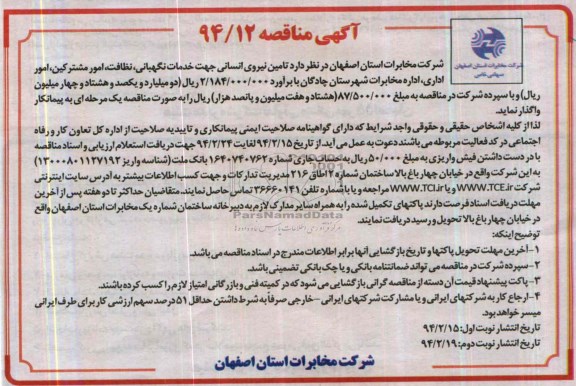 آگهی مناقصه ۹۴/۱۲
شرکت مخابرات استان اصفهان
سهامی خاص
شرکت مخابرات استان اصفهان در نظر دارد تامین نیروی انسانی جهت خدمات نگهبانی، نظافت، امور مشترکین، امور
اداری، اداره مخابرات شهرستان چادگان با برآورد ۲/۱۸۴/۰۰۰/۰۰۰ ریال (دو میلیارد و یکصد و هشتاد و چهار میلیون
ریال) و با سپرده شرکت در مناقصه به مبلغ ۸۷/۵۰۰/۰۰۰ (هشتاد و هفت میلیون و پانصد هزار) ریال را به صورت مناقصه یک مرحله ای به پیمانکار
واگذار نماید.
لذا از کلیه اشخاص حقیقی و حقوقی واجد شرایط که دارای گواهینامه صلاحیت ایمنی پیمانکاری و تاییدیه صلاحیت از اداره کل تعاون کار و رفاه
اجتماعی در کد فعالیت مربوطه می باشند دعوت به عمل می آید. از تاریخ ۹۴/۲/۱۵ لغایت ۹۴/۲/۲۴ جهت دریافت استعلام ارزیابی و اسناد مناقصه
با در دست داشتن فیش واریزی به مبلغ ۵۰/۰۰۰ ریال به حساب جاری شماره ۱۶۴۰۷۴۰۷۶۲ بانک ملت (شناسه واریز ۱۳۰۰۰۸۰۱۱۲۷۱۹۲)
به این شرکت واقع در خیابان چهارباغ بالا ساختمان شماره ۲ اطاق ۲۱۶ مدیریت تدارکات و جهت کسب اطلاعات بیشتر به آدرس سایت اینترنتی
شرکت WWW.TCE.ir و یا WWW.TCI.ir مراجعه و یا با شماره تلفن ۳۶۶۶۰۱۴۱ تماس حاصل نمایند. متقاضیان حداکثر تا دو هفته پس از آخرین
مهلت دریافت اسناد فرصت دارند پاکتهای تکمیل شده را به همراه سایر مدارک لازم به دبیرخانه ساختمان شماره یک مخابرات استان اصفهان واقع
در خیابان چهار باغ بالا تحویل و رسید دریافت نمایند.
توضیح اینکه:
۱-آخرین مهلت تحویل پاکتها و تاریخ بازگشایی آنها برابر اطلاعات مندرج در اسناد مناقصه می باشد.
۲-سپرده شرکت در مناقصه می تواند ضمانتنامه بانکی و یا چک بانکی تضمینی باشد.
۳-پاکت پیشنهاد قیمت آن دسته از مناقصه گرانی بازگشایی می شود که در کمیته فنی و بازرگانی امتیاز لازم را کسب کرده باشند.
۴-ارجاع کار به شرکتهای ایرانی و یا مشارکت شرکتهای ایرانی -خارجی صرفاً به شرط داشتن حداقل ۵۱ درصد سهم ارزشی کار برای طرف ایرانی
میسر خواهد بود.
تاریخ انتشار نوبت اول: ۹۴/۲/۱۵
تاریخ انتشار نوبت دوم: ۹۴/۲/۱۹
شرکت مخابرات استان اصفهان
ParsNamadData